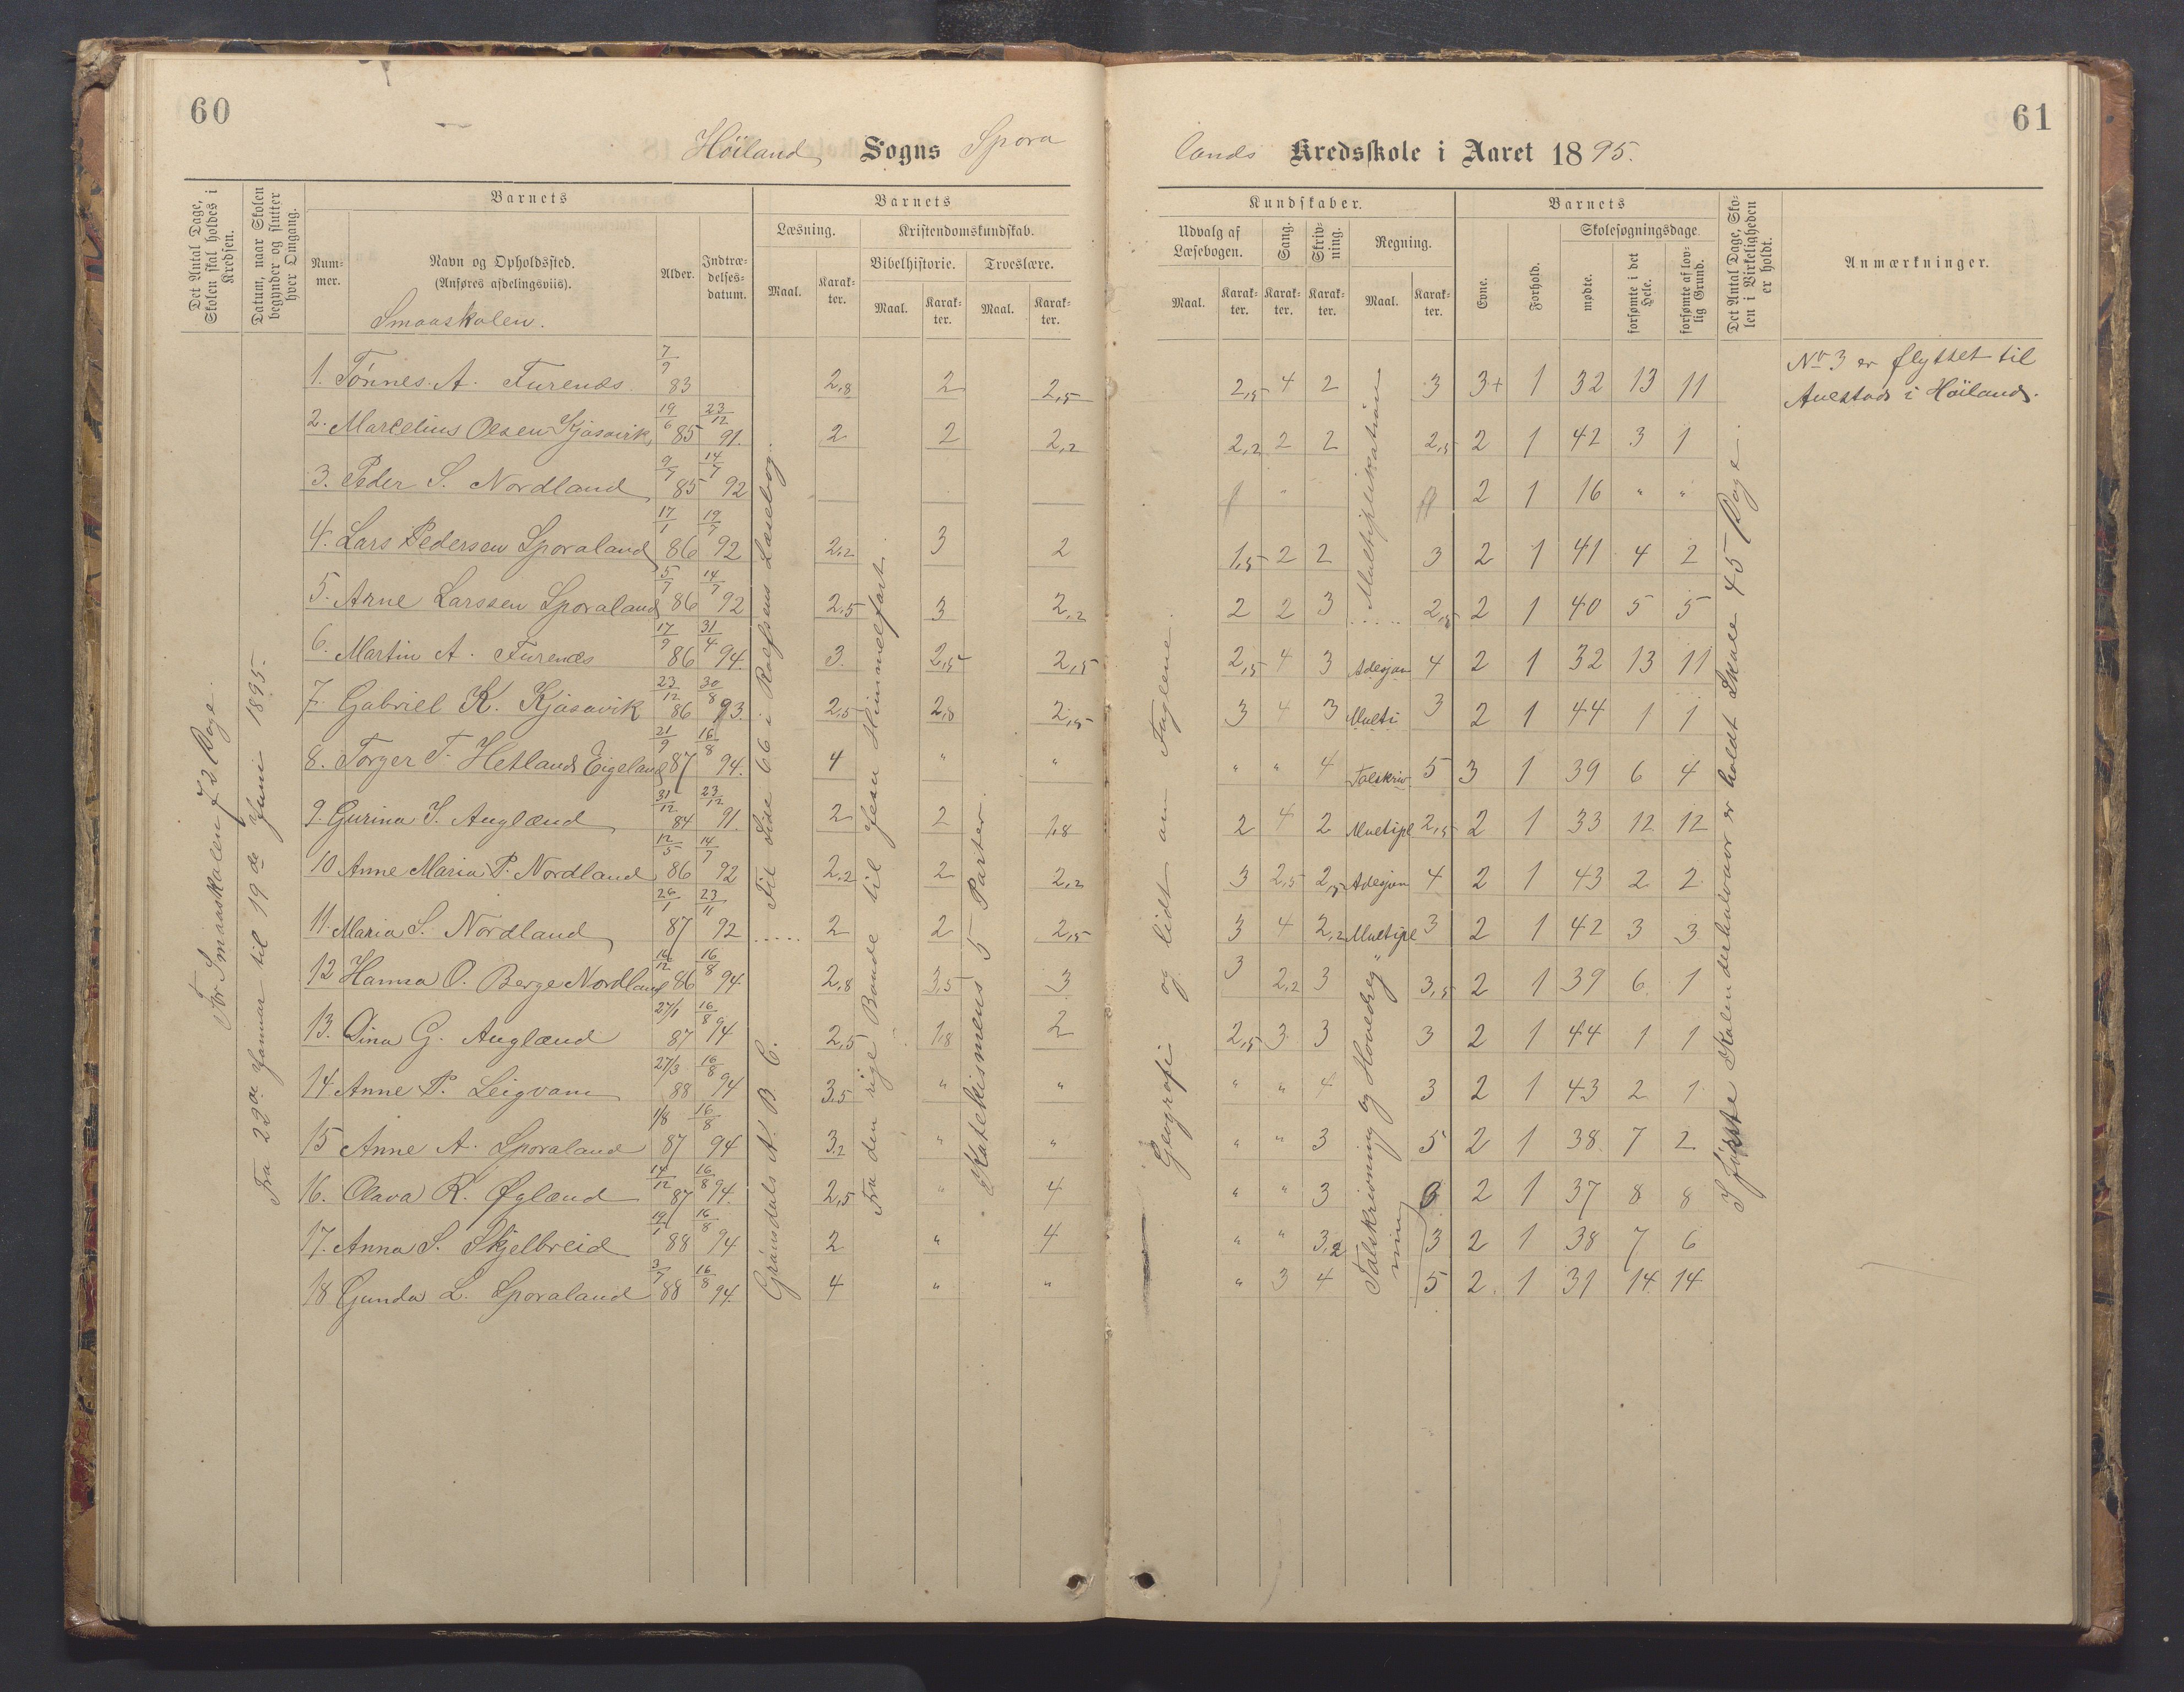 60
Höiland Sogns Spora
Det Antal Dage, Skolen skal holdes i Kredsen.
Datum, naar Skolen begynder og slutter hver Omgang.
Barnets
Nummer.
Navn og Opholdssted.
(Anføres afdelingsviis).
Smaaskolen.
Alder.
Indtrædelsesdatum.
Barnets
Læsning.
Maal.
Karakter.
Kristendomskundskab.
Bibelhistorie.
Maal.
Karakter.
Troeslære.
Maal.
Karakter.
For Smaaskolen 72 Dage.
Fra 22de Januar til 19de Juni 1895.
1. Tönnes A. Furenæs 7/9 83 2,8 2 2,5
2. Marcelius Olsen Kjösavik 19/6 85 23/12 91. 2 2 2,2
3. Peder S. Nordland 9/7 85 14/7 92
4. Lars Pedersen Sporaland 17/1 86 19/7 92 2,2 3 2
5. Arne Larssen Sporaland 5/7 86 14/7 92 2,5 3 2,2
6. Martin A. Furenæs 17/9 86 31/4 94. 3. 2,5 2,5
7. Gabriel K. Kjösavik 23/12 86 30/8 93. 2,5 2,8 2,5
8. Torger T. Hetland Eigeland 21/9 87 16/8 94. 4 " "
9. Gurina S. Auglænd 31/12 84 23/12 91. 2 2 1,8
10 Anne Maria P. Nordland 12/5 86 14/7 92 2,2 2 2,2
11. Maria S. Nordland 26/1 87 23/11 92 ..... 2 2 2,5
12 Hanna O. Berge Nordland 16/12 86 16/8 94 2,8 3,5 3
13. Dina G. Auglænd 27/1 87 16/8 94 2,5 1,8 2
14 Anne P. Leigvam 27/3 88 16/8 94 3,5 " "
15 Anne A. Sporaland 1/8 87 16/8 94 3,2 " "
16. Olava R. Øglænd 14/12 87 16/8 94. 2,5 " 4
17. Anna S. Skjelbreid 19/1 88 16/8 94 2 " 4
18 Gunda L. Sporaland 3/7 88 16/8 94. 4 " "
Til Side 66 i Rolfsens Læsebog.
Gröndals A. B. C.
Fra den rige Bonde til Jesu Himmelfart.
Katekismens 5 Parter.
61
lands Kredsskole i Aaret 1895.
Kundskaber.
Udvalg af Læsebogen.
Maal.
Karakter.
Sang.
Karakter.
Skrivning.
Karakter.
Regning.
Maal.
Karakter.
Barnets
Evne.
Forhold.
Skolesøgningsdage
mødte.
forsømte i det Hele.
forsømte af lovlig Grund.
Det Antal Dage, Skolen i Virkeligheden er holdt.
Anmærkninger.
Geografi og lidt om Fuglene.
2,5 4 2 3 3+ 1 32 13 11
2,2 2 2 2,5 2 1 42 3 1
" 2 1 16 " "
1,5 2 2 3 2 1 41 4 2
2 2 3 ..... 2,5 2 1 40 5 5
2,5 4 3 Adesjon 4 2 1 32 13 11
3 4 3 Multi 3 2 1 44 1 1
" " 4 Talskriv 5 3 1 39 6 4
2 4 2 Multipl 2,5 2 1 33 12 12
3 2,5 2,5 Adesjon 4 2 1 43 2 2
3 4 2,2 Multipl 3 2 1 42 3 3
3 2,2 3 3,5 2 1 39 6 1
2,5 3 3 3 2 1 44 1 1
" " 4 3 2 1 43 2 1
" " 3 5 2 1 38 7 2
" " 3 2 1 37 8 8
" " 3,2 3 2 1 38 7 6
" 3 4 5 2. 1 31 14 14
Multiplikation
Talskrivning og Hovedregning
I første Kalenderhalvaar er holdt Skole 45 Dage.
No 3 er flyttet til
Aulstad i Höiland.